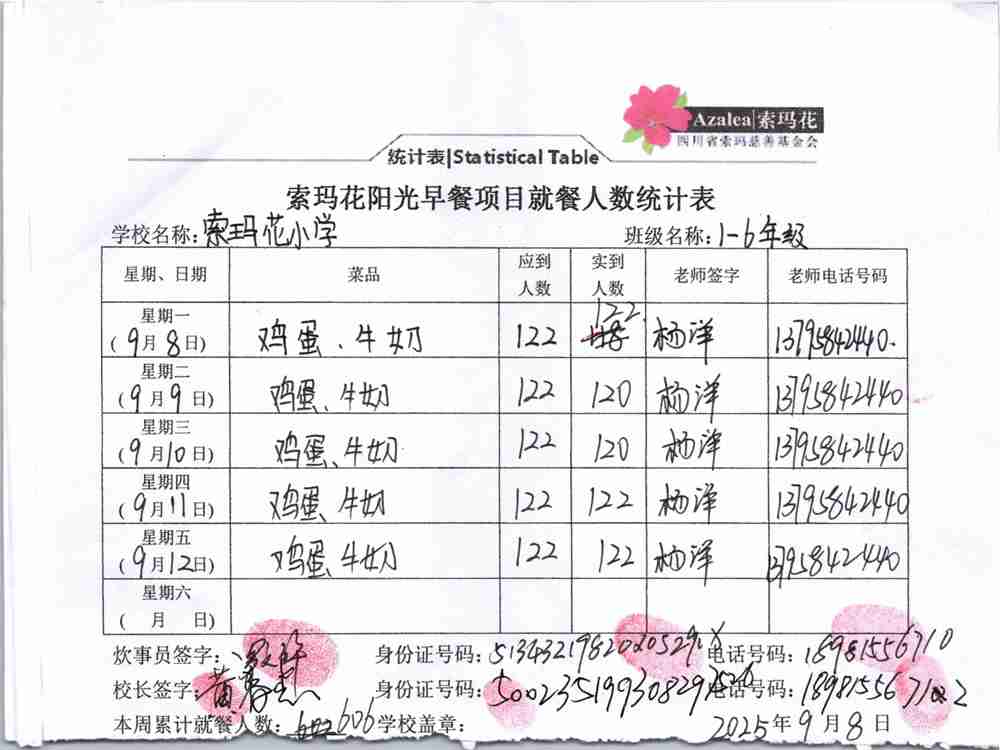 Azalea|索玛花
四川省索玛慈善基金会
统计表|Statistical Table
索玛花阳光早餐项目就餐人数统计表
学校名称:索玛花小学 班级名称:1-6年级
星期、日期 菜品 应到人数 实到人数 老师签字 老师电话号码
星期一 (9月8日) 鸡蛋、牛奶 122 122. 杨洋 13795842440.
星期二 (9月9日) 鸡蛋、牛奶 122 120 杨洋 13795842440
星期三 (9月10日) 鸡蛋、牛奶 122 120 杨洋 13795842440
星期四 (9月11日) 鸡蛋、牛奶 122 122 杨洋 13795842440
星期五 (9月12日) 鸡蛋、牛奶 122 122 杨洋 13795842440
星期六 ( 月 日)
炊事员签字: 身份证号码: 电话号码:
校长签字: 身份证号码: 电话号码:
本周累计就餐人数: 606 学校盖章: 2025年9月8日